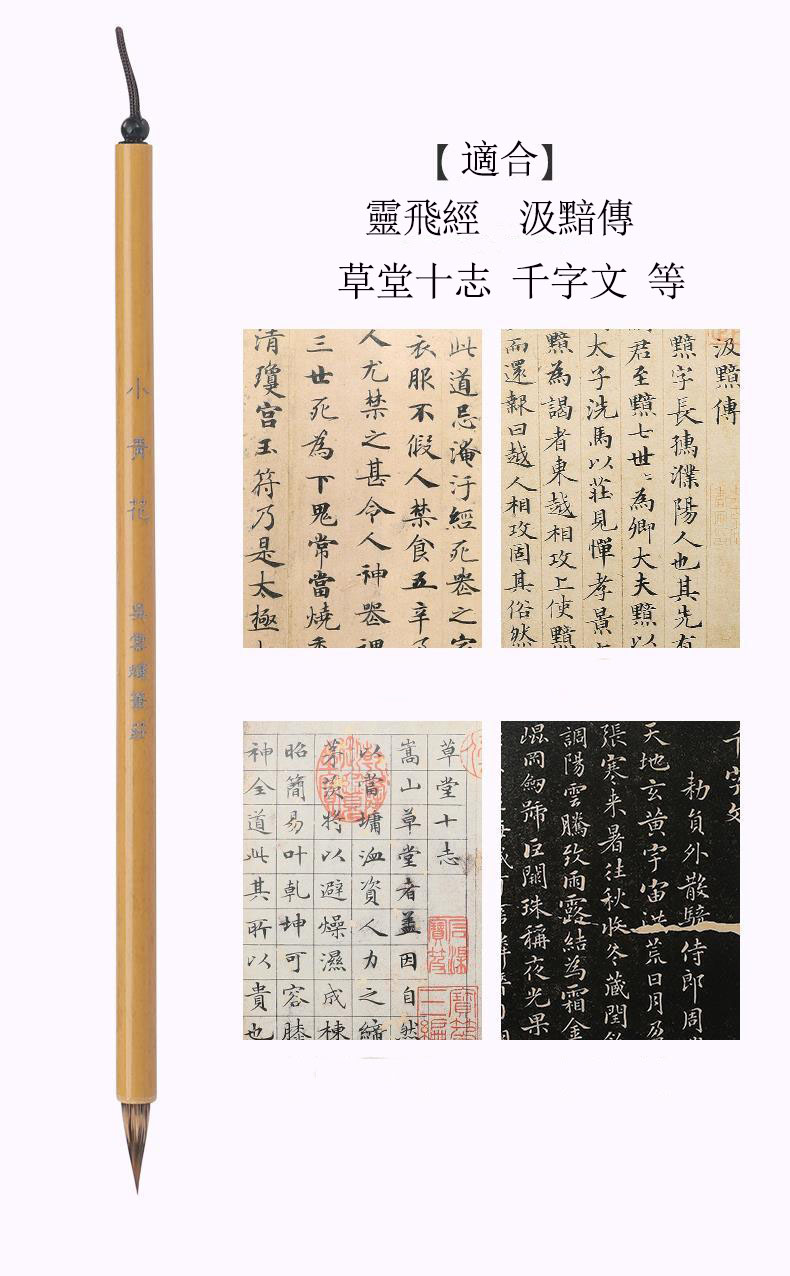 【適合】
靈飛經 汲黯傳
草堂十志 千字文 等
小
黃
花
吳雲輝筆莊
此道忌淹汙經死喪之家
衣服不假人禁食五辛
人尤禁之甚令人神器
三世死為下鬼常當燒香
清瓊宮玉符乃是太極
汲黯傳
黯字長孺濮陽人也其先有
君至黯七世世為卿大夫黯以
太子洗馬以莊見憚孝景
黯為謁者東越相攻上使黯
而還報曰越人相攻固其俗然
草堂十志
嵩山草堂者蓋因自然
以當墉洫資人力之締
茅茨將以避燥濕成棟
昭簡易叶乾坤可容膝
神全道此其所以貴也
千字文
勑員外散騎侍郎周
天地玄黃宇宙洪荒日月
張寒来暑往秋收冬藏閏
調陽雲騰致雨露結為霜金
崐岡劍號巨闕珠稱夜光果